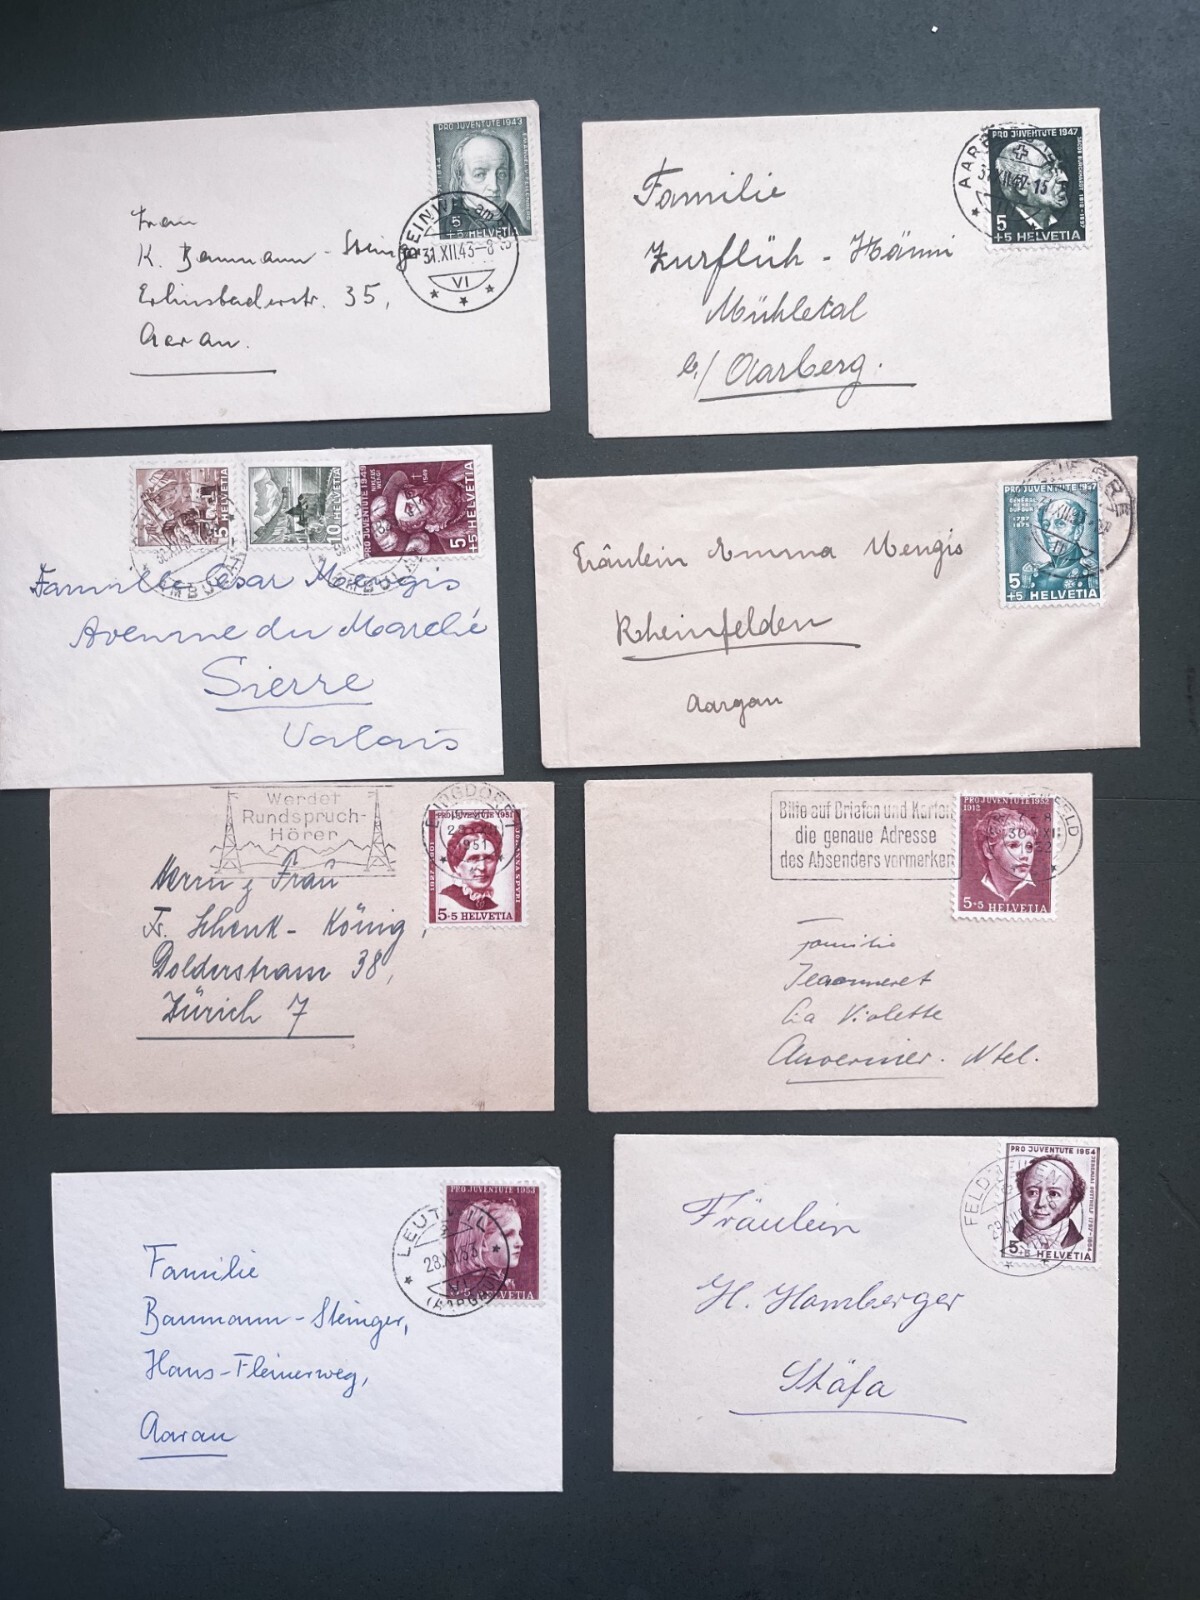 PRO JUVENTUTE 1943
5
+5 HELVETIA
BEINWIL am
31.XII.43-8
VI
Frau
K. Baumann - Steinger
Erlinsbacherstr. 35,
Aarau.
PRO JUVENTUTE 1947
JACOB BURCKHARDT 1818-1897
5
+5 HELVETIA
31.XII.47-15
Familie
Zurflüh - Hänni
Mühletal
b/ Aarberg.
5 HELVETIA
10 HELVETIA
PRO JUVENTUTE
NIKLAUS
5
+5 HELVETIA
Famille Cesar Mengis
Avenue du Marché
Sierre
Valais
PRO JUVENTUTE
DUFOUR
5
+5 HELVETIA
Fräulein Emma Mengis
Rheinfelden
Aargau
Werdet
Rundspruch-
Hörer
PRO JUVENTUTE 1951
JOHANNA SPYRI
5+5 HELVETIA
1951
Herrn & Frau
Fr. Schenk - König,
Dolderstrasse 38,
Zürich 7
Bitte auf Briefen und Karten
die genaue Adresse
des Absenders vermerken
PRO JUVENTUTE 1952
1912
5+5 HELVETIA
Familie
Jeanneret
La Violette
Auvernier. Ntel.
PRO JUVENTUTE 1953
HELVETIA
LEUTWIL
28.XII.53
(AARGAU)
Familie
Baumann - Steinger,
Hans-Fleinerweg,
Aarau
PRO JUVENTUTE 1954
JEREMIAS GOTTHELF 1797-1854
5+5 HELVETIA
FELD
Fräulein
H. Hamberger
Stäfa